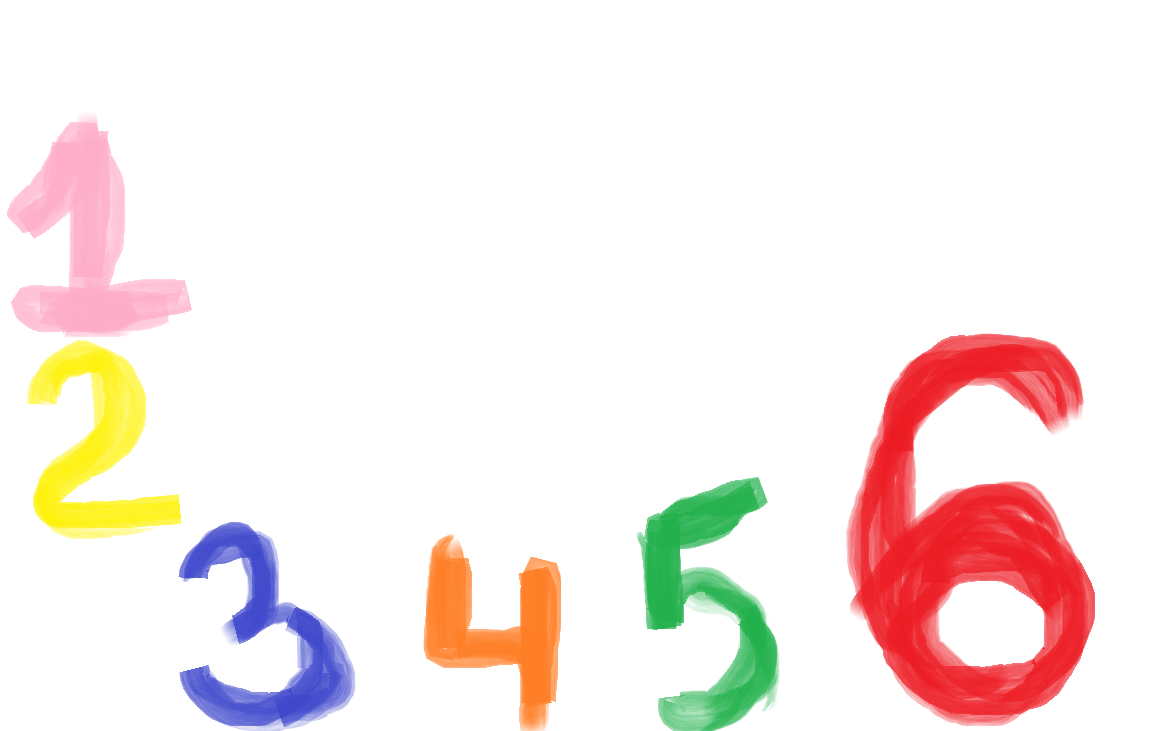 1
2
3 4 5 6